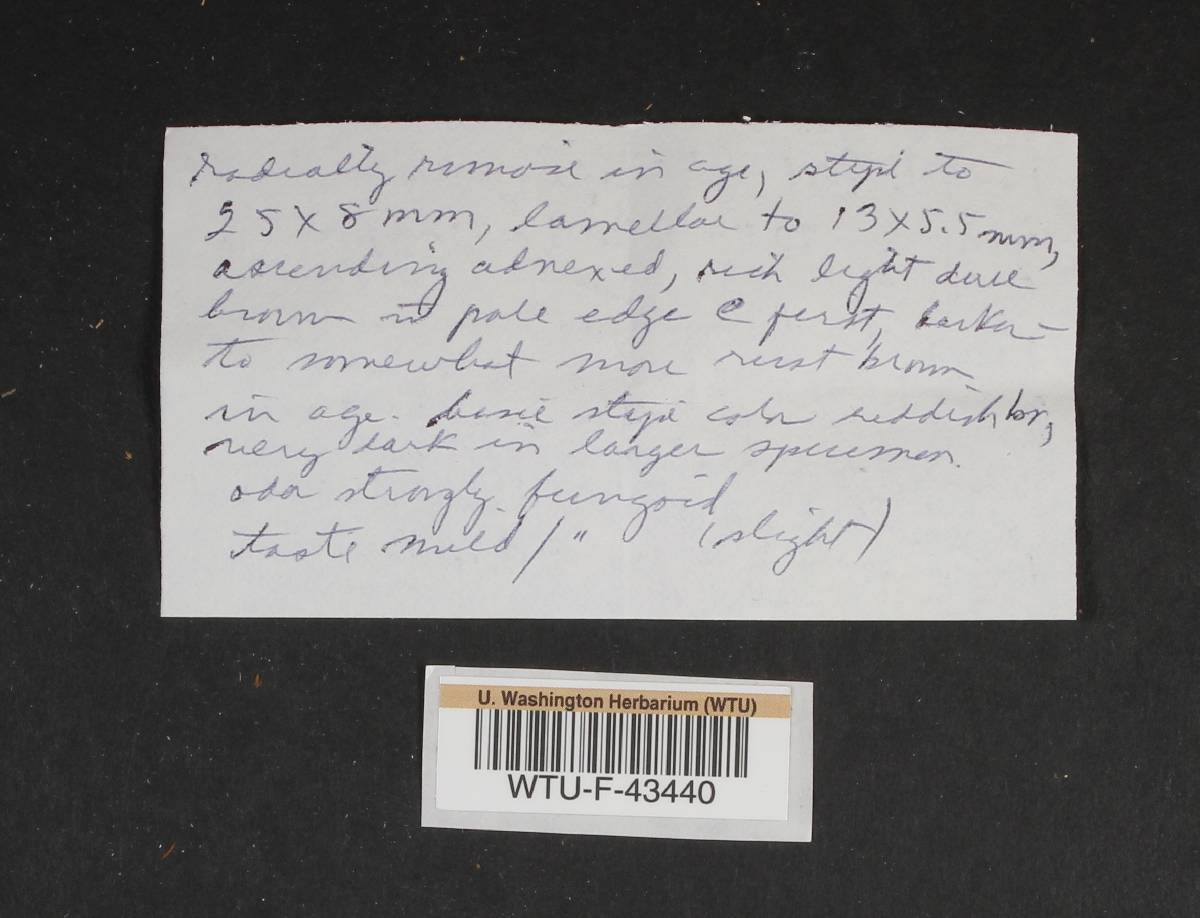 radially rimose in age, stipe to
25 X 8 mm, lamellae to 13 X 5.5 mm,
ascending adnexed, rich light dull
brown w pale edge @ first, darker
to somewhat more rust brown
in age. basic stipe color reddish br,
very dark in larger specimen.
odor strongly fungoid
taste mild / " (slight)
U. Washington Herbarium (WTU)
WTU-F-43440